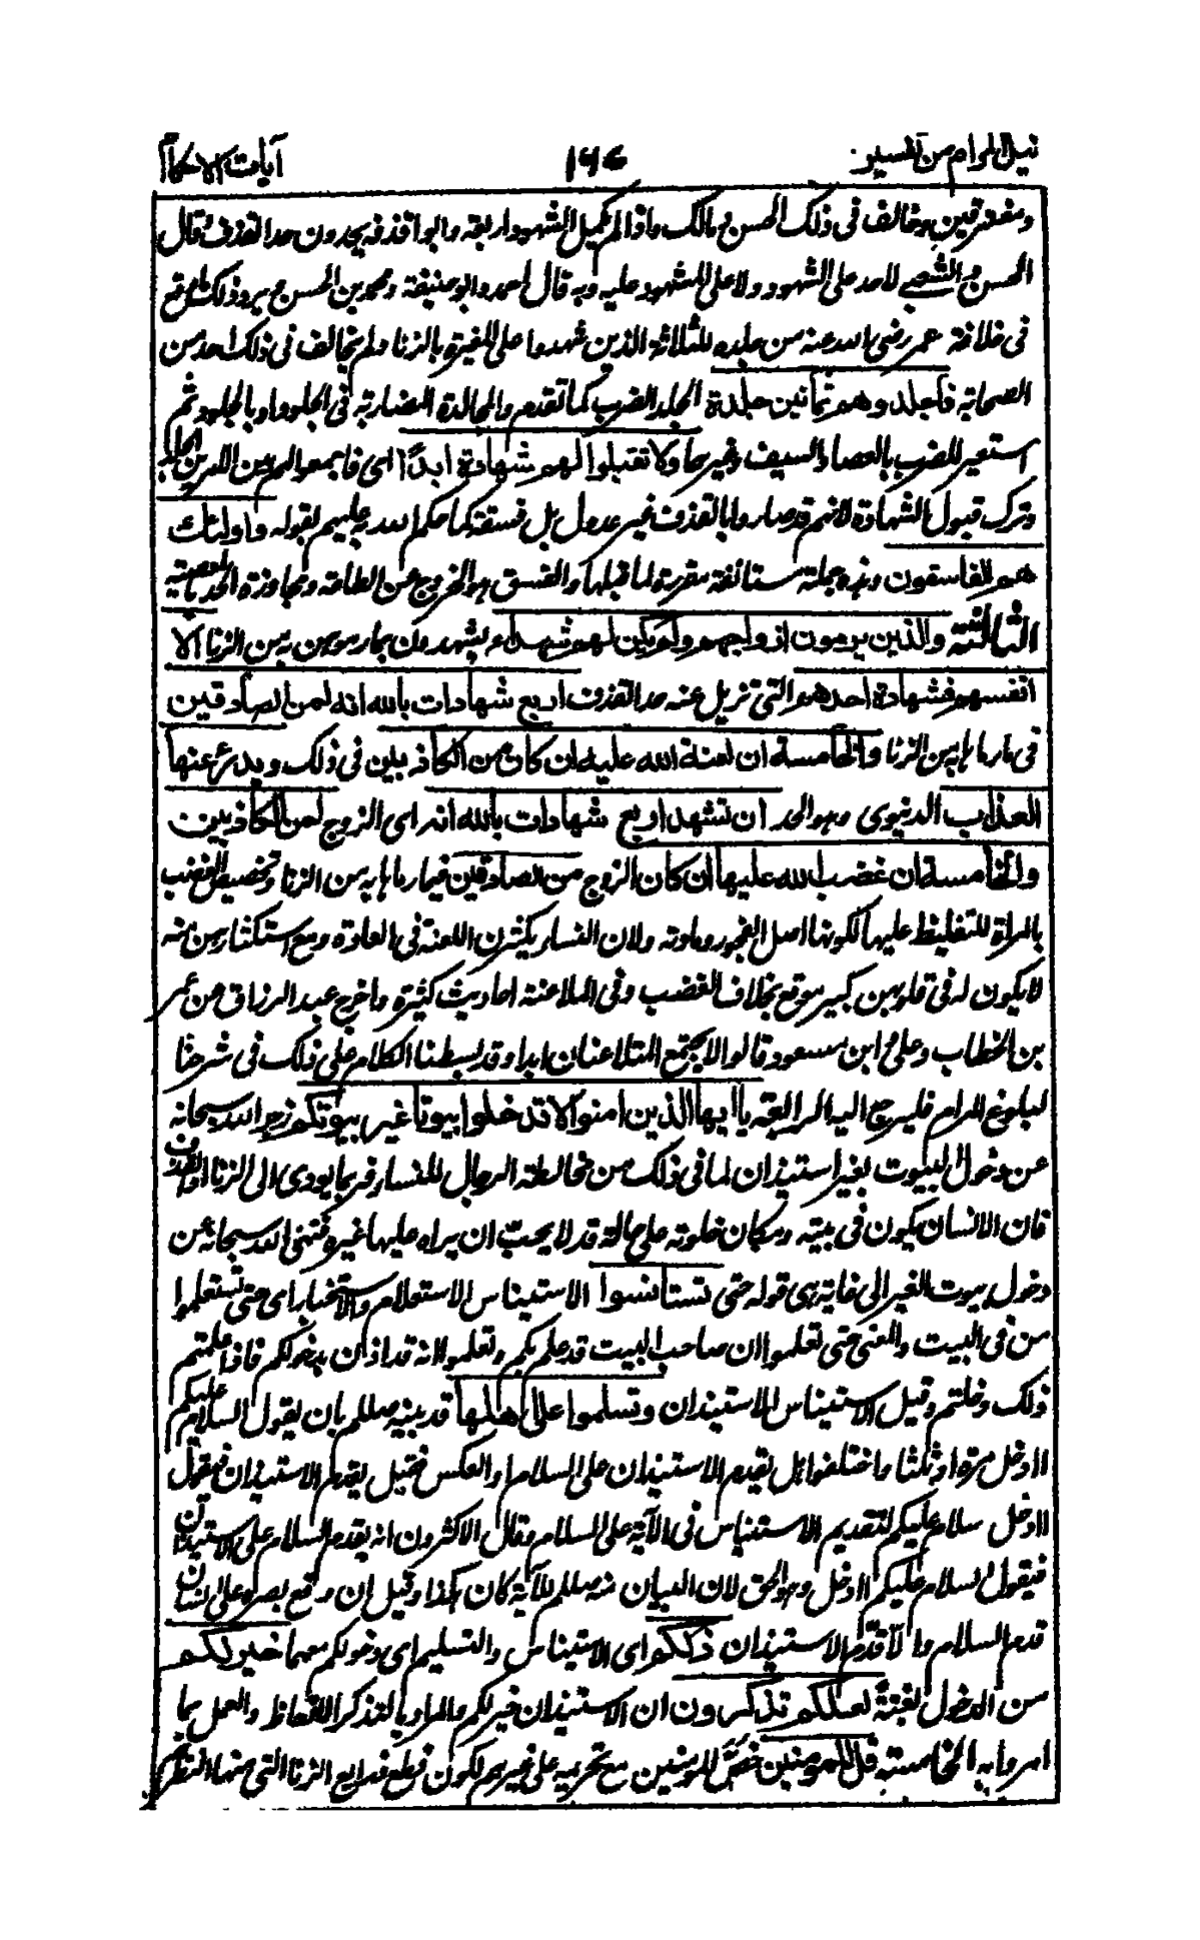 نيل المرام من تفسير
آيات الاحكام
ومفترقين وخالف فى ذلك الحسن ومالك واذا لم يكمل الشهود اربعة كانوا قذفة يحدون حد القذف وقال
الحسن والشعبى لا حد على الشهود ولا على المشهود عليه وبه قال احمد وابو حنيفة ومحمد بن الحسن ويرد ذلك ما وقع
فى خلافة عمر رضى الله عنه من جلده للثلاثة الذين شهدوا على المغيرة بالزنا ولم يخالف فى ذلك احد من
الصحابة فاجلدوهم ثمانين جلدة الجلد الضرب كما تقدم والمجالدة المضاربة فى الجلود او بالجلود ثم
استعير للضرب بالعصا والسيف وغيرها ولا تقبلوا لهم شهادة ابدًا اى فاجمعوا لهم بين الامرين الجلد
وترك قبول الشهادة لانهم قد صاروا بالقذف غير عدول بل فسقة كما حكم الله به عليهم بقوله واولئك
هم الفاسقون وهذه جملة مستانفة مقررة لما قبلها والفسق هو الخروج عن الطاعة ومجاوزة الحد بالمعصية
الثالثة والذين يرمون ازواجهم ولم يكن لهم شهداء يشهدون بما رموهن به من الزنا الا
انفسهم فشهادة احدهم التى تزيل عنه حد القذف اربع شهادات بالله انه لمن الصادقين
فى ما رماها به من الزنا والخامسة ان لعنة الله عليه ان كان من الكاذبين فى ذلك ويدرء عنها
العذاب الدنيوى وهو الحد ان تشهد اربع شهادات بالله انه اى الزوج لمن الكاذبين
والخامسة ان غضب الله عليها ان كان الزوج من الصادقين فيما رماها به من الزنا وتخصيص الغضب
بالمراة للتغليظ عليها لكونها اصل الفجور ومادته ولان النساء يكثرن اللعنة فى العادة ومع استكثارهن منه
لا يكون له فى قلوبهن كبير موقع بخلاف الغضب وفى الملاعنة احاديث كثيرة واخرج عبد الرزاق عن عمر
بن الخطاب وعلى وابن مسعود قالوا لا يجتمع المتلاعنان ابدا وقد بسطنا الكلام على ذلك فى شرحنا
لبلوغ المرام فليرجع اليه الرابعة يا ايها الذين امنوا لا تدخلوا بيوتا غير بيوتكم زجر الله سبحانه
عن دخول البيوت بغير استيذان لما فى ذلك من مخالطة الرجال للنساء فربما يودى الى الزنا او القذف
فان الانسان يكون فى بيته ومكان خلوته على حالة قد لا يحب ان يراه عليها غيره فنهى الله سبحانه عن
دخول بيوت الغير الى غاية هى قوله حتى تستانسوا الاستيناس الاستعلام والاستخبار اى حتى تستعلموا
من فى البيت والمعنى حتى تعلموا ان صاحب البيت قد علم بكم وتعلموا انه قد اذن بدخولكم فاذا علمتم
ذلك دخلتم وقيل الاستيناس الاستيذان وتسلموا على اهلها قد بينه صللم بان يقول السلام عليكم
اادخل مرة او ثلثا واختلفوا هل يقدم الاستيذان على السلام او العكس فقيل يقدم الاستيذان فيقول
اادخل سلام عليكم لتقديم الاستيناس فى الآية على السلام وقال الاكثرون انه يقدم السلام على الاستيذان
فيقول السلام عليكم اادخل وهو الحق لان البيان منه صللم للآية كان هكذا وقيل ان وقع بصره على انسان
قدم السلام والا قدّم الاستيذان ذلكم اى الاستيناس والتسليم اى دخولكم معهما خير لكم
من الدخول بغتةً لعلكم تذكرون ان الاستيذان خير لكم والمراد بالتذكر الاتعاظ والعمل بما
امروا به الخامسة قل للمومنين خصّ المومنين مع تحريمه على غيرهم لكون قطع ذرايع الزنا التى منها النظر هم